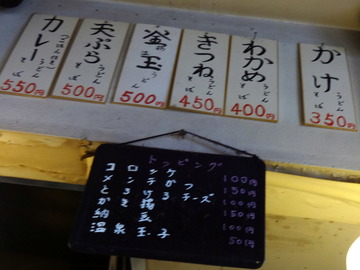 かけ
うどん
そば
350円
わかめ
うどん
そば
400円
きつね
うどん
そば
450円
釜玉
うどん
500円
天ぷら
うどん
そば
500円
カレー
うどん
そば
550円
トッピング
コロッケ 100円
メンチかつ 150円
とろけるチーズ 100円
かき揚 150円
納豆 100円
温泉玉子 50円